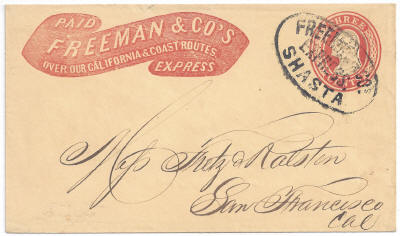 PAID
FREEMAN & CO'S
OVER OUR CALIFORNIA & COAST ROUTES.
EXPRESS
THREE
SHASTA
Fretz & Ralston
San Francisco
Cal